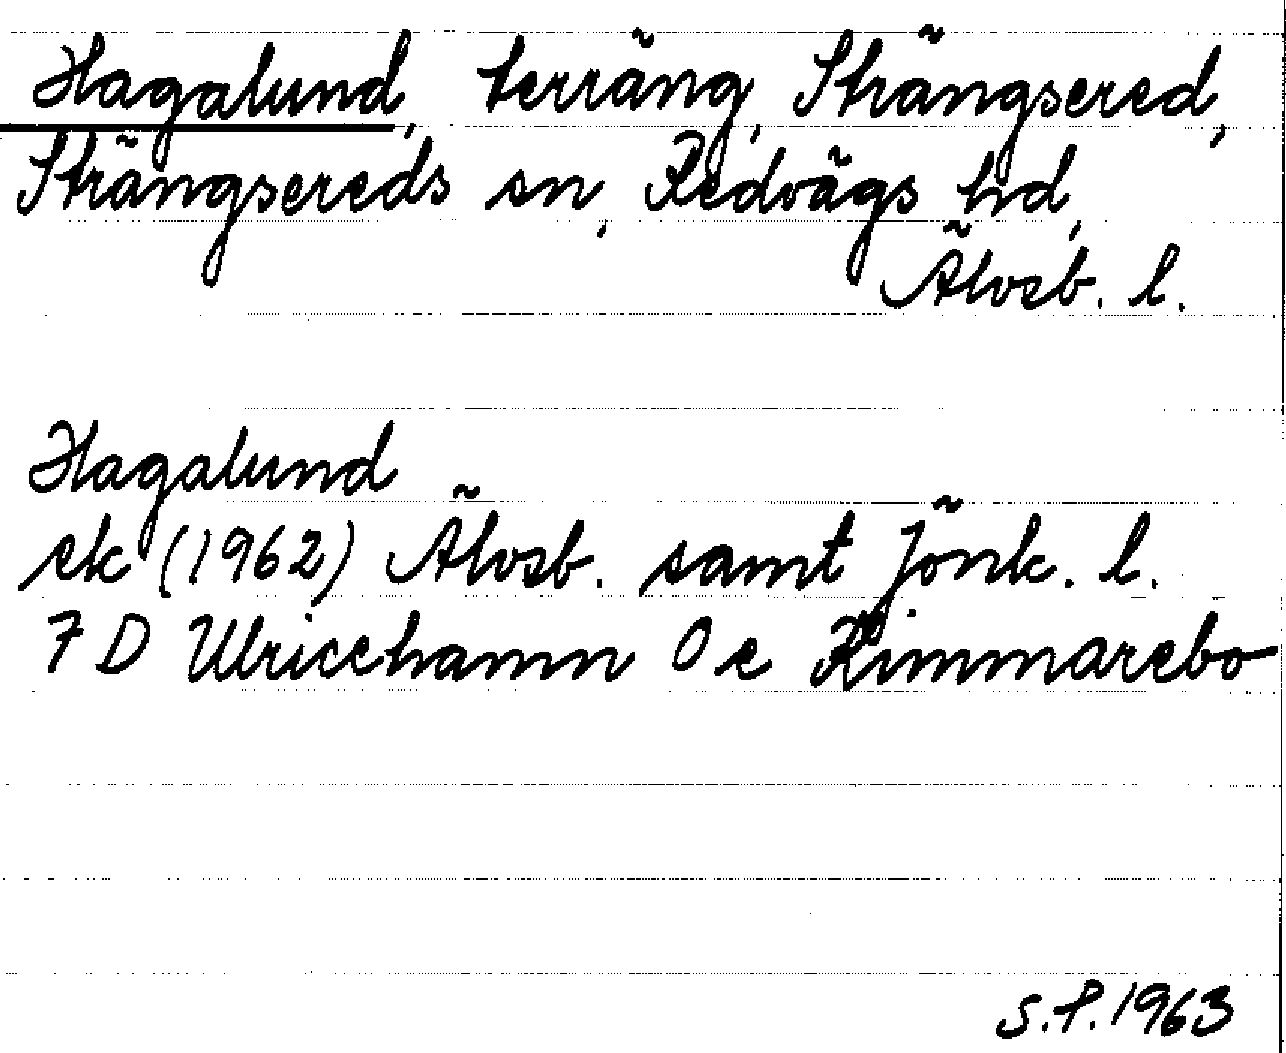 Hagalund, terräng, Strängsered,
Strängsereds sn, Redvägs hd,
Älvsb. l.
Hagalund
ek (1962) Älvsb. samt Jönk. l.
7 D Ulricehamn 0 e Kimmarebo
S.P. 1963